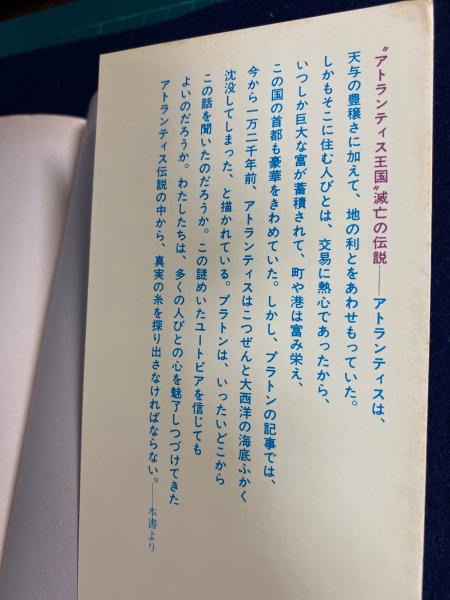 “アトランティス王国”滅亡の伝説――アトランティスは、
天与の豊穣さに加えて、地の利とをあわせもっていた。
しかもそこに住む人びとは、交易に熱心であったから、
いつしか巨大な富が蓄積されて、町や港は富み栄え、
この国の首都も豪華をきわめていた。しかし、プラトンの記事では、
今から一万二千年前、アトランティスはこつぜんと大西洋の海底ふかく
沈没してしまった、と描かれている。プラトンは、いったいどこから
この話を聞いたのだろうか。この謎めいたユートピアを信じても
よいのだろうか。わたしたちは、多くの人びとの心を魅了しつづけてきた
アトランティス伝説の中から、真実の糸を探り出さなければならない。――本書より